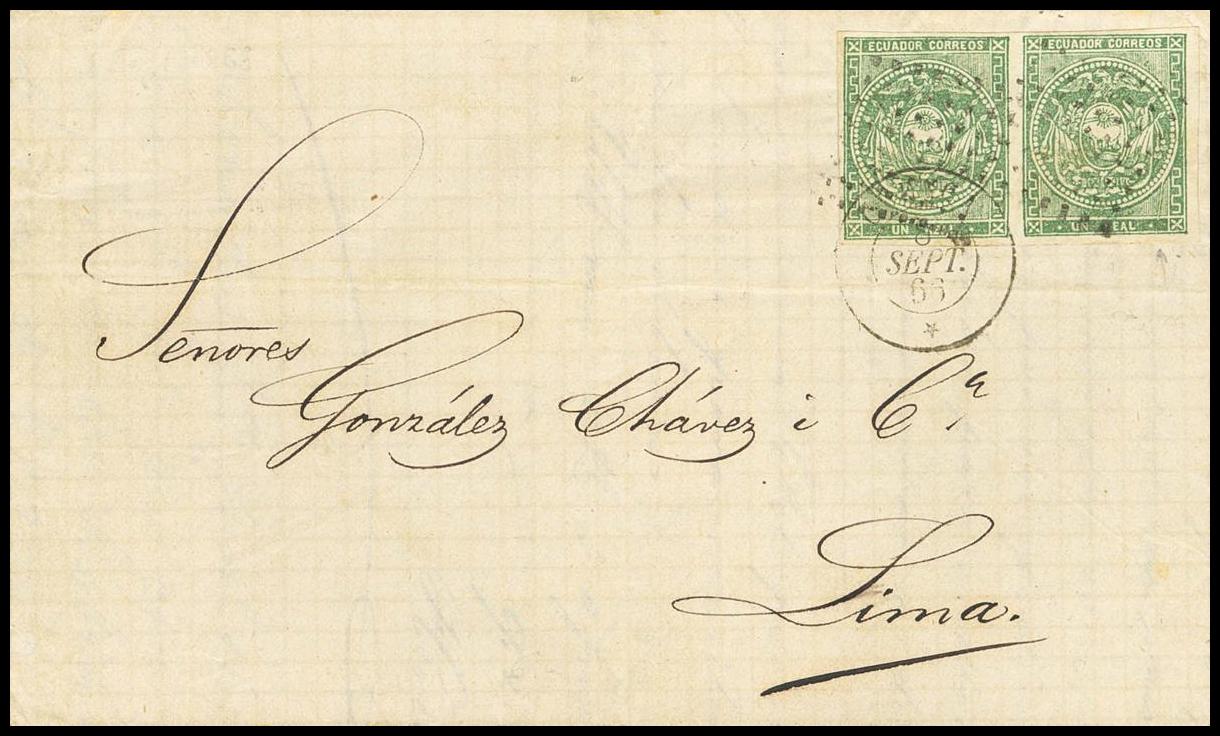 ECUADOR CORREOS ECUADOR CORREOS
UN UN REAL
SEPT.
66
Señores
González Chávez i Cª
Lima.